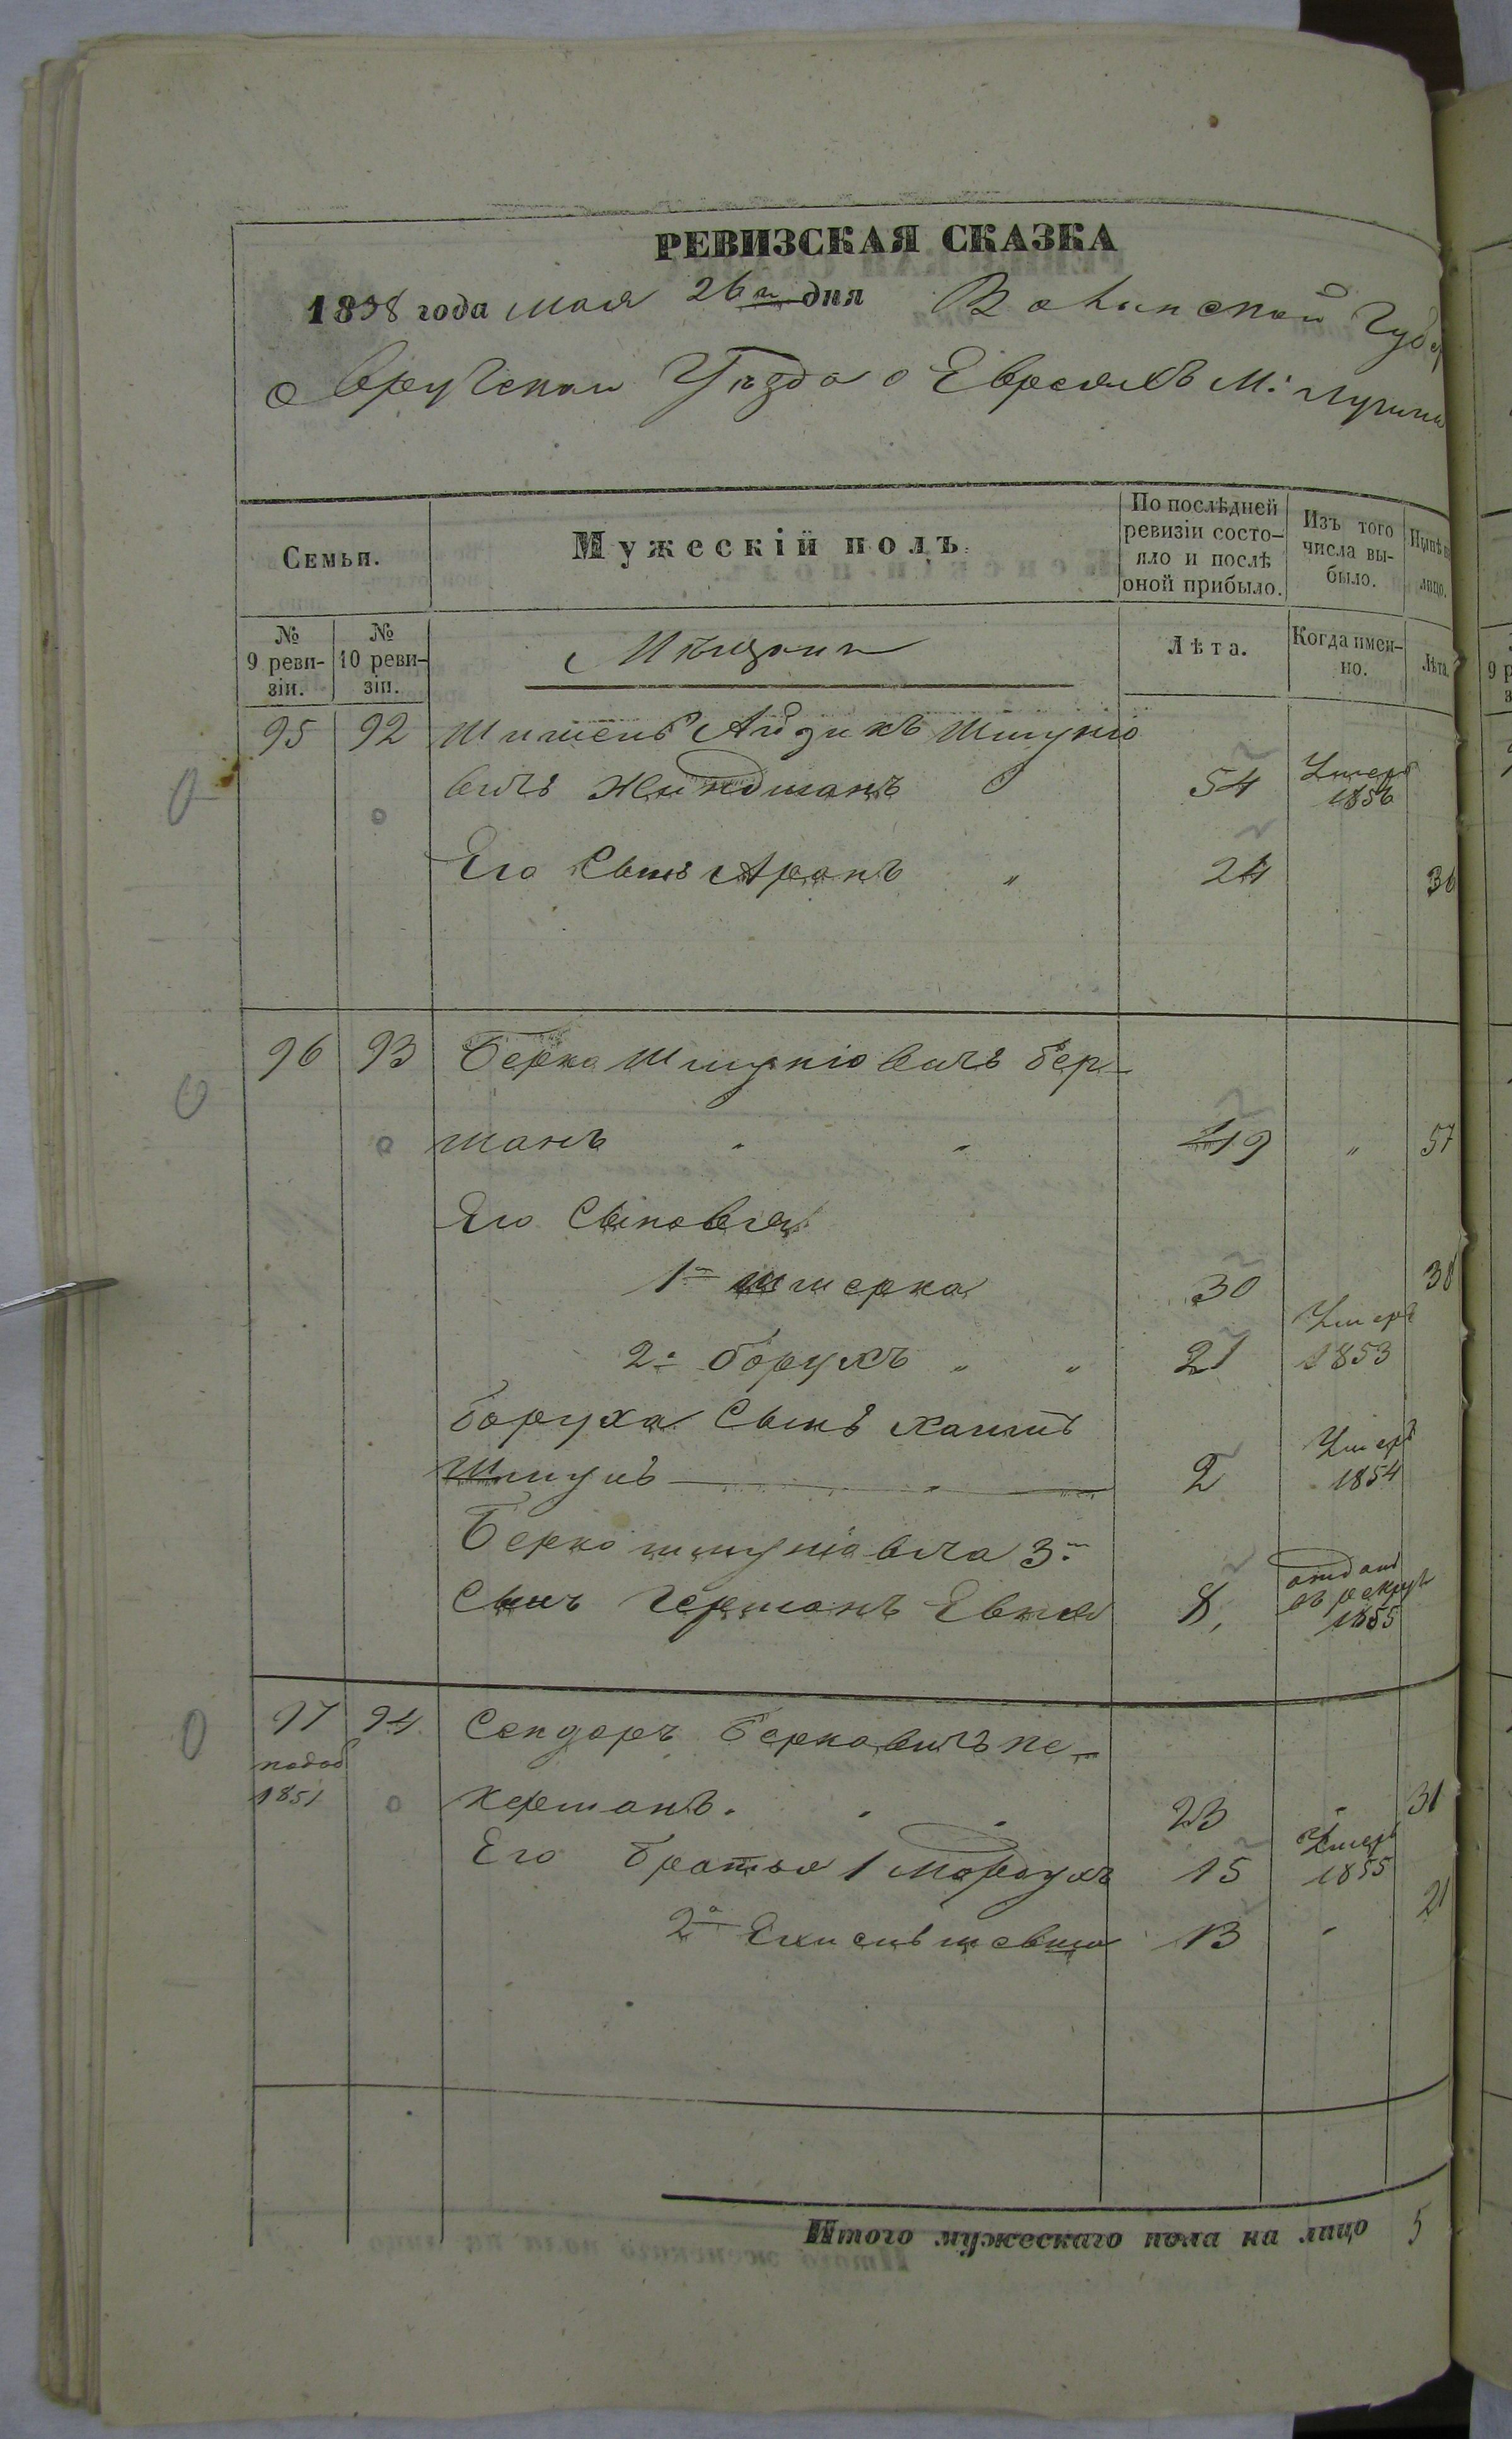 РЕВИЗСКАЯ СКАЗКА
1858 года мая 26го дня Волынской Губер
Овручскаи Уѣзда о Евреяхъ М: Лугины
Семьи.
Мужескій полъ.
По послѣдней ревизіи состо-
яло и послѣ оной прибыло.
Изъ того числа вы-
было.
Нынѣ на лицо.
№ 9 реви-
зіи.
№ 10 реви-
зіи.
Мѣщани
Лѣта.
Когда имен-
но.
Лѣта.
95 92 Айзикъ Шмуліо
вичъ 54 Умеръ 1856
Его Сынъ Аронъ " 24 36
96 93 Берко Шмуліовичъ бер-
манъ " " 49 " 57
Его Сыновья
1й Шмерка 30 38
2й борухъ " " 21 Умеръ 1853
боруха Сынъ Хаимъ
Шмуль 2 Умеръ 1854
Берко шмуліовича 3й
Сынъ Гершонъ 8, отдань въ рекруты 1855
97 94 Сендоръ Берковичъ пе-
1851 керманъ. 23 " 31
Его братья 1 Мордухъ 15 Умеръ 1855
2й 13 " 21
Итого мужескаго пола на лицо 5